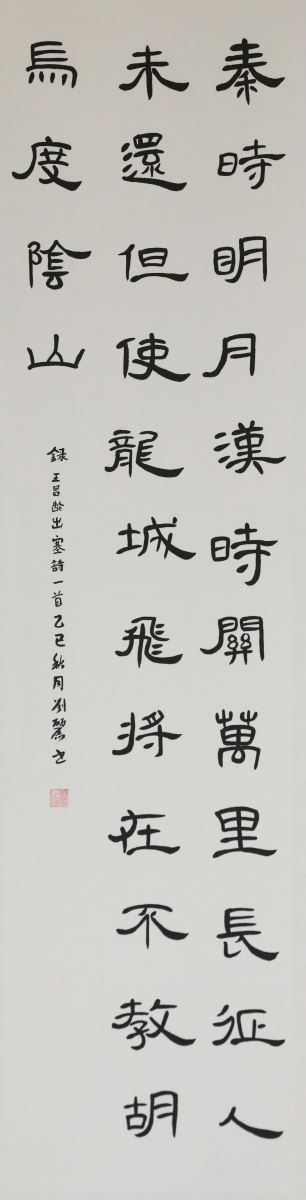 秦時明月漢時關萬里長征人
未還但使龍城飛将在不教胡
馬度陰山
錄王昌齡出塞詩一首乙巳秋月劉麗書